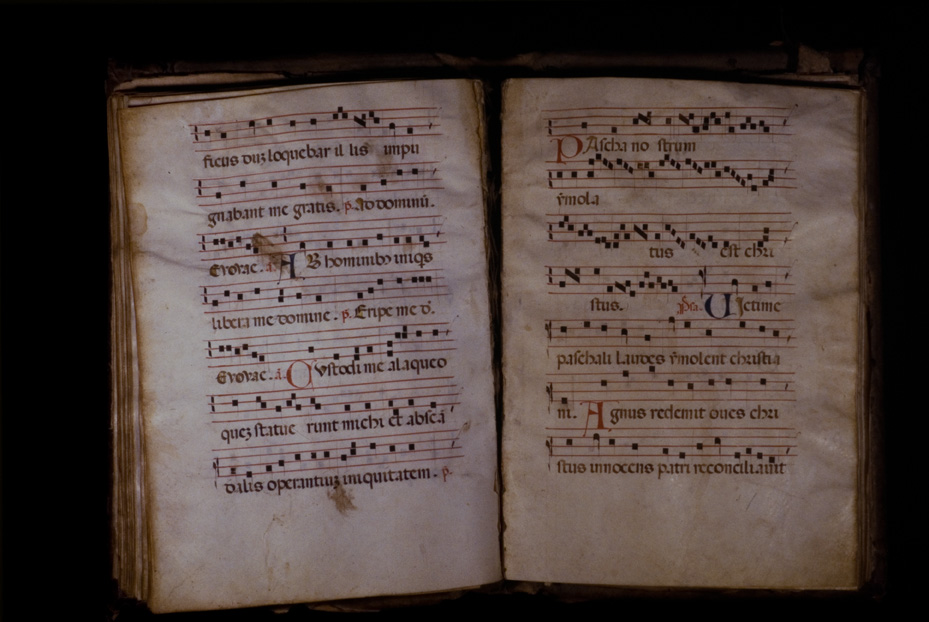 ficus duz loquebar il lis impu
gnabant me gratis. p. Ad dominū.
Evovae. a. AB hominibɔ iniqs
libera me domine. p. Eripe me d.
Evovae. a. Custodi me a laqueo
quez statue runt michi et absca
dalis operantiuz iniquitatem. p.
PAscha no strum
ỹmola
tus est chri
stus. Victime
paschali laudes ỹmolent christia
ni. Agnus redemit oues chri
stus innocens patri reconciliauit